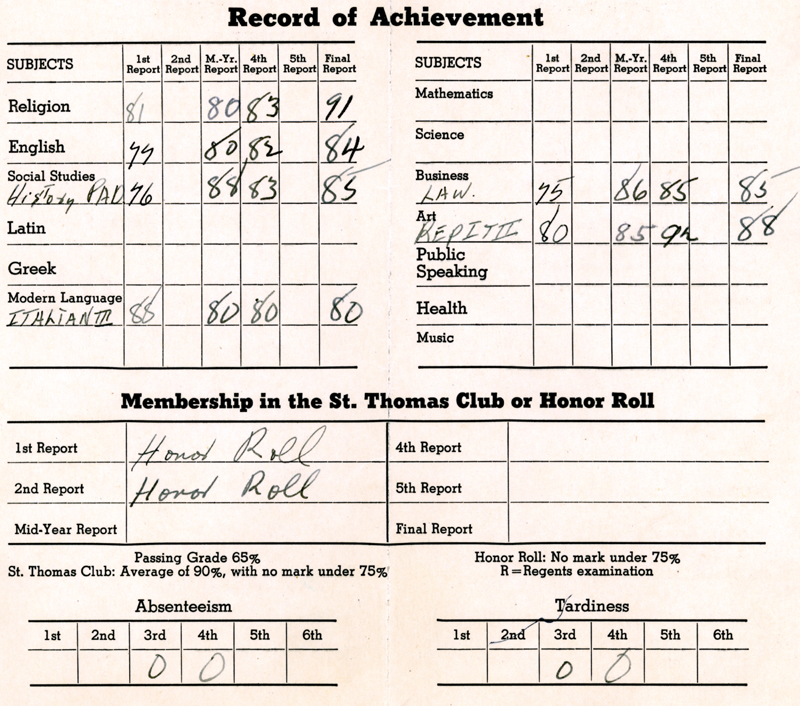 Record of Achievement
SUBJECTS 1st Report 2nd Report M.-Yr. Report 4th Report 5th Report Final Report
Religion 81 80 83 91
English 79 80 82 84
Social Studies
History PAD 76 88 83 85
Latin
Greek
Modern Language
ITALIAN III 88 80 80 80
SUBJECTS 1st Report 2nd Report M.-Yr. Report 4th Report 5th Report Final Report
Mathematics
Science
Business
LAW. 75 86 85 85
Art
80 85 92 88
Public
Speaking
Health
Music
Membership in the St. Thomas Club or Honor Roll
1st Report Honor Roll 4th Report
2nd Report Honor Roll 5th Report
Mid-Year Report Final Report
Passing Grade 65%
St. Thomas Club: Average of 90%, with no mark under 75%
Honor Roll: No mark under 75%
R=Regents examination
Absenteeism
1st 2nd 3rd 4th 5th 6th
0 0
Tardiness
1st 2nd 3rd 4th 5th 6th
0 0